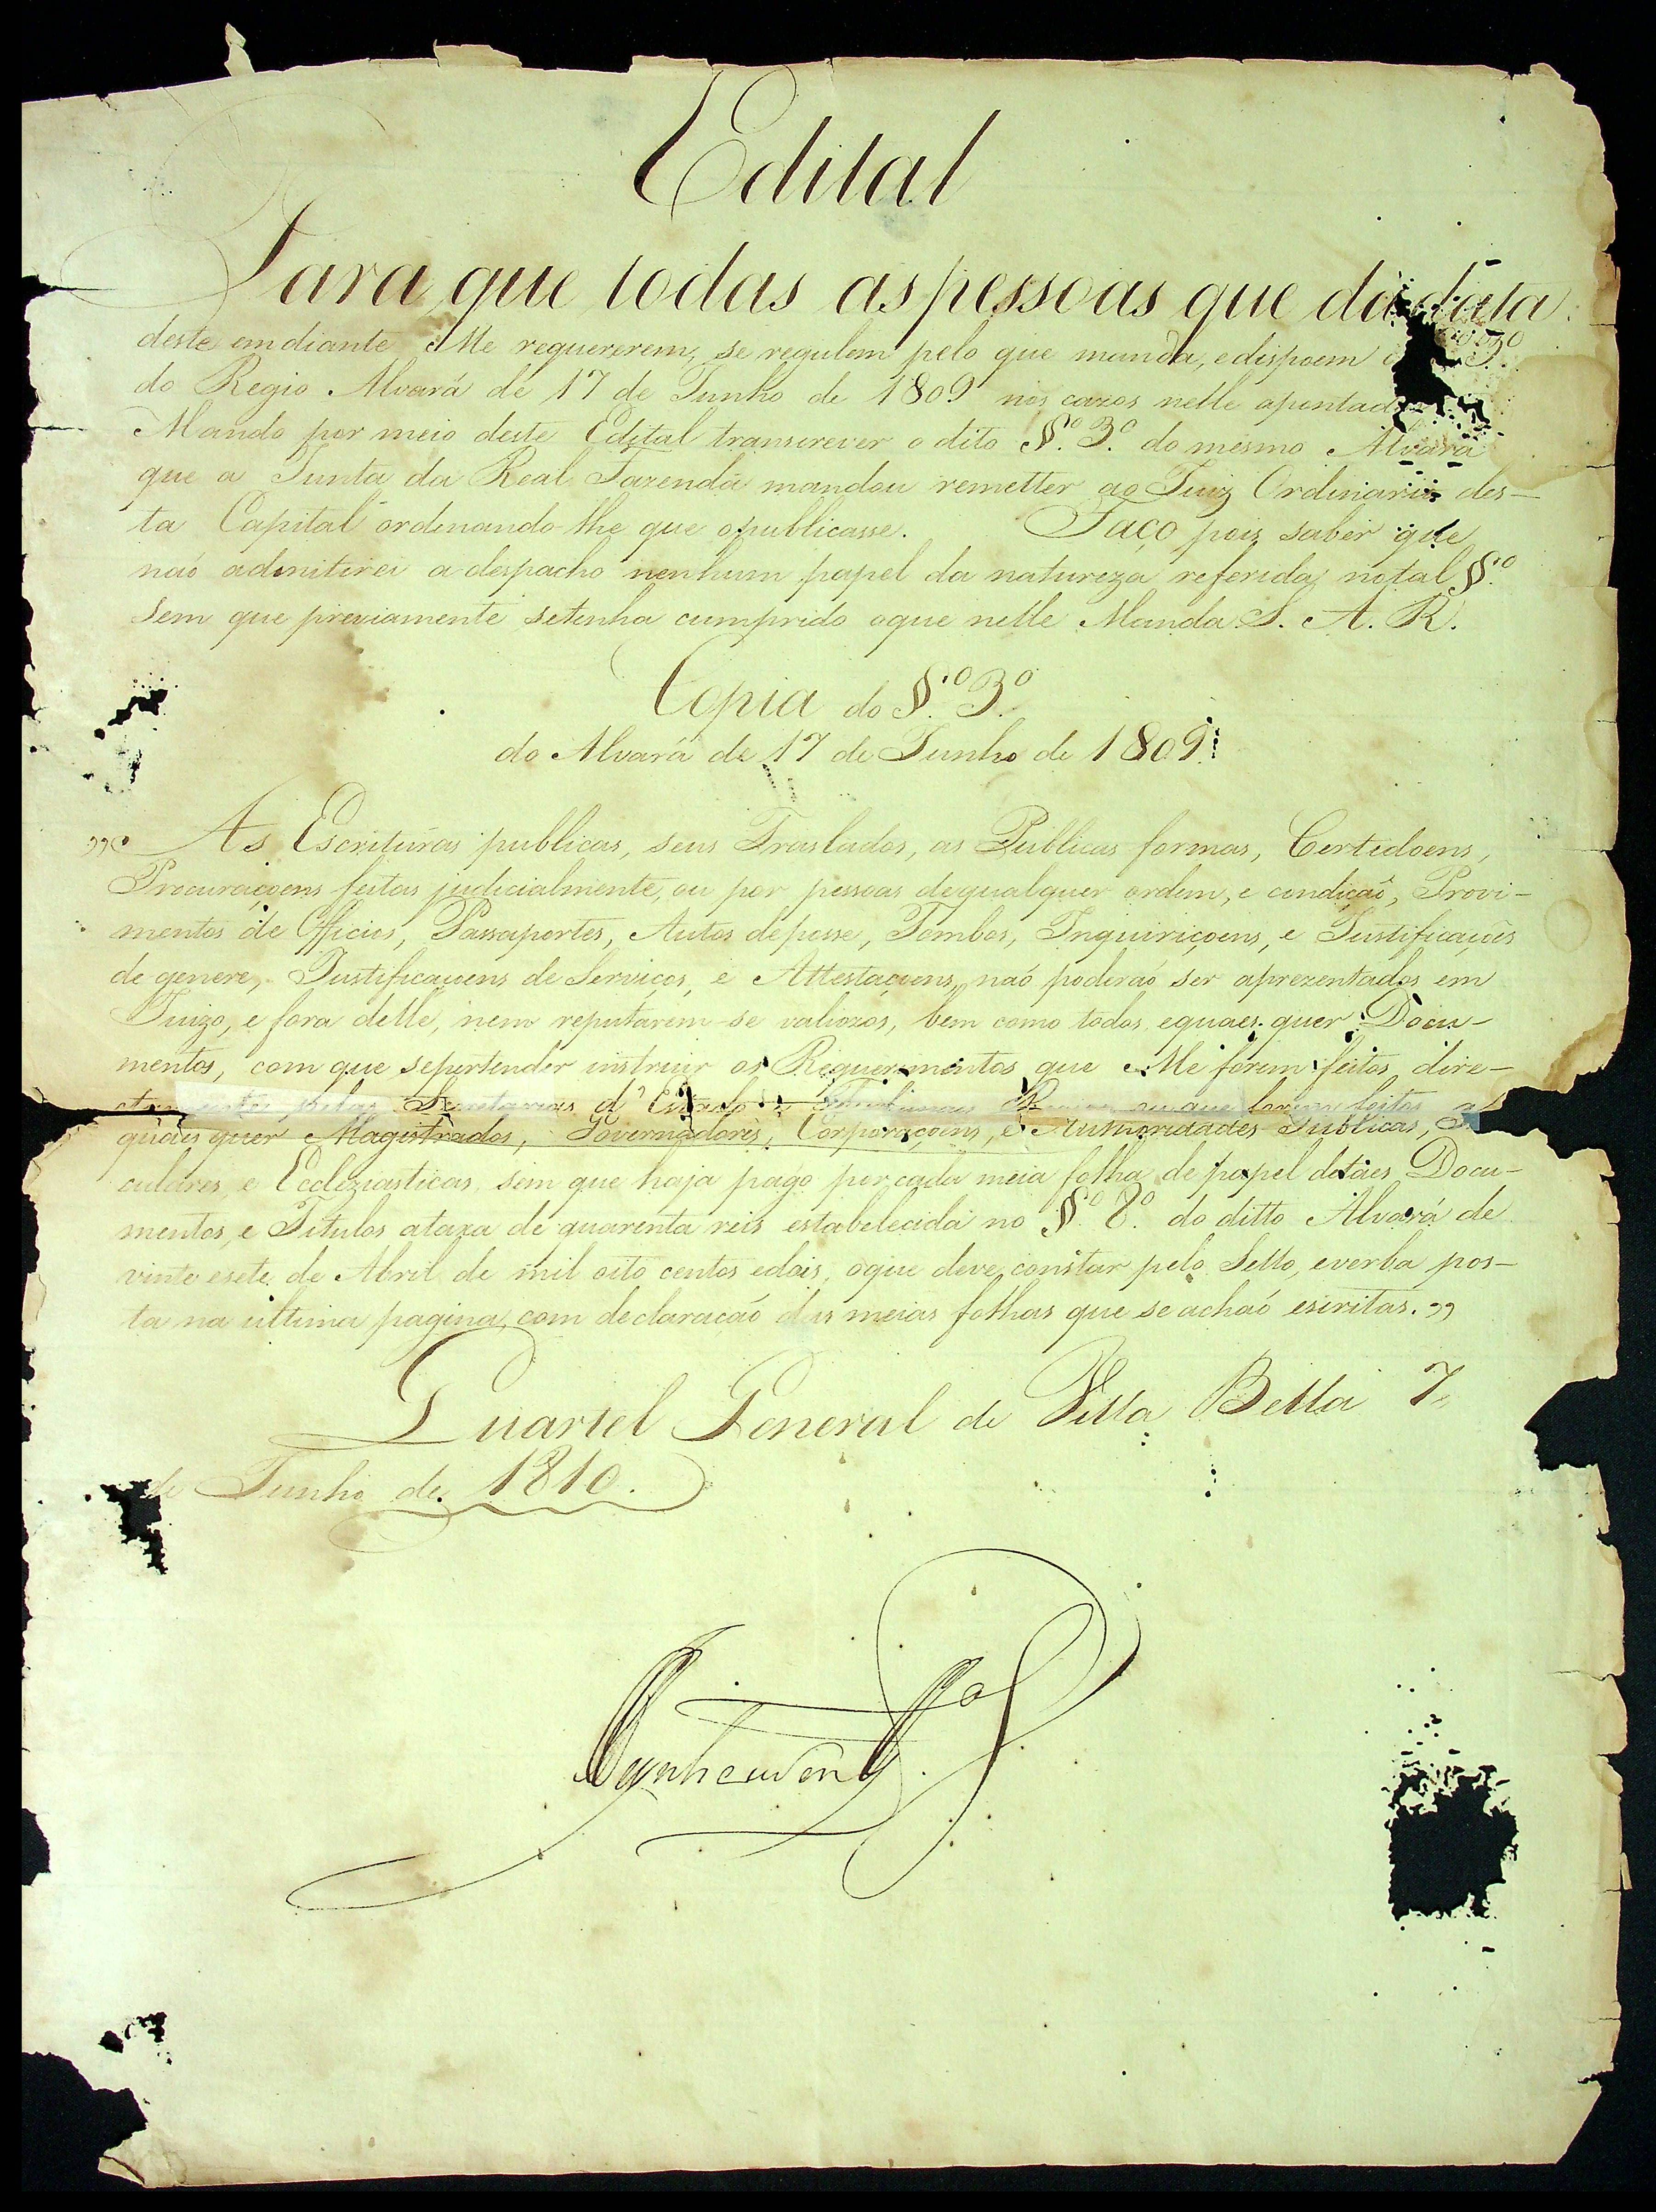 Edital
Para que todas as pessoas que da data
deste em diante Me requererem, se regulem pelo que manda, e dispoem o §.º 3.º
do Regio Alvará de 17 de Junho de 1809 nos cazos nelle apontad
Mando por meio deste Edital transcrever o dito §.º 3.º do mesmo Alvará
que a Junta da Real Fazenda mandou remetter ao Juiz Ordinario des-
ta Capital ordenando-lhe que o publicasse. Faço pois saber que
naõ admitirei a despacho nenhum papel da natureza referida no tal §.º
sem que previamente se tenha cumprido o que nelle Manda S. A. R.
Copia do §.º 3.º
do Alvará de 17 de Junho de 1809.
„ As Escrituras publicas, seus Traslados, as Publicas formas, Certidoens,
Procuraçoens feitas judicialmente, ou por pessoas de qualquer ordem, e condiçaõ, Provi-
mentos de Officios, Passaportes, Autos de posse, Tombos, Inquiriçoens, e Justificaçoẽs
de genere, Justificaçoens de Serviços, e Attestaçoens, naõ poderaõ ser aprezentados em
Juizo, e fora delle, nem reputarem-se valiozos, bem como todos, e quaes quer Docu-
mentos, com que se pertender instruir os Requerimentos que Me forem feitos, dire-
pelas Secretarias d'Estado e Tribunaes ou que forem feitos a
quaes quer Magistrados, Governadores, Corporaçoens, e Authoridades Publicas,
culares, e Eccleziasticas, sem que haja pago por cada meia folha de papel de táes Docu-
mentos, e Titulos a taxa de quarenta reis estabelecida no §.º 8.º do ditto Alvará de
vinte e sete de Abril de mil oito centos e dois, o que deve constar pelo Sello, e verba pos-
ta na ultima pagina, com declaraçaõ das meias folhas que se achaõ escritas. „
Quartel General de Villa Bella 7
de Junho de 1810.
Oyenhausen